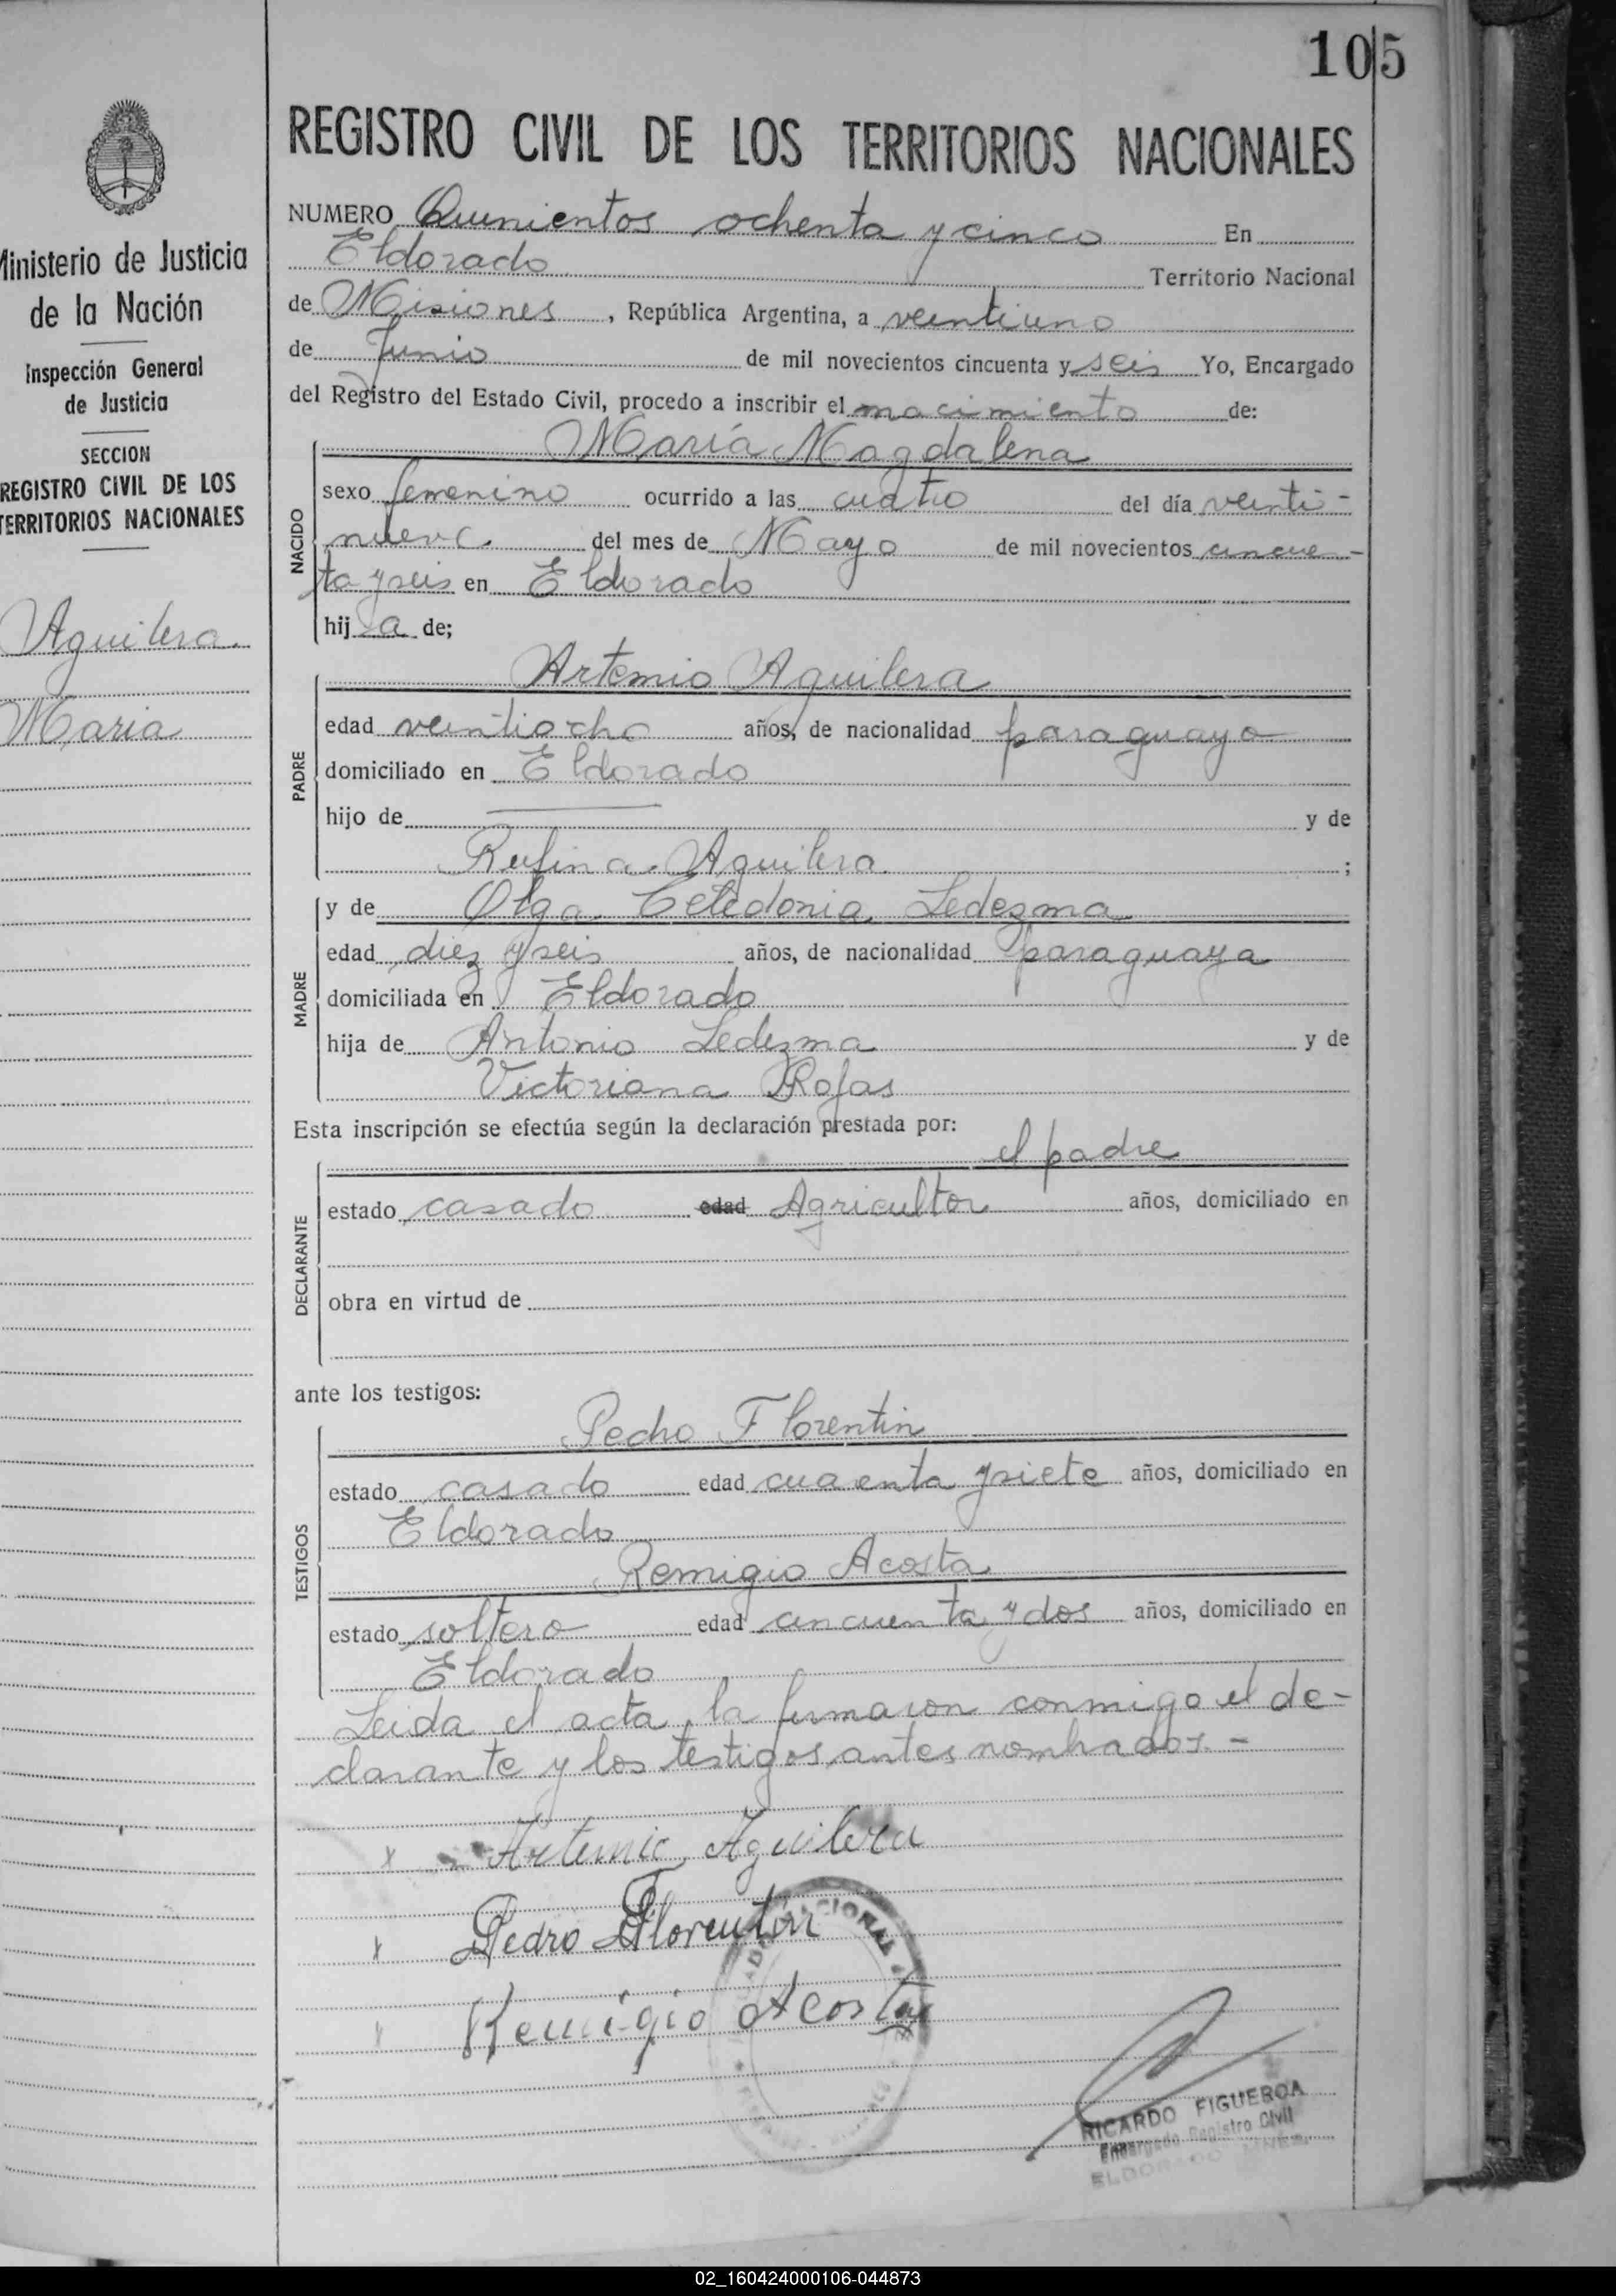 105
Ministerio de Justicia
de la Nación
Inspección General
de Justicia
SECCION
REGISTRO CIVIL DE LOS
TERRITORIOS NACIONALES
Aguilera
Maria
REGISTRO CIVIL DE LOS TERRITORIOS NACIONALES
NUMERO Quinientos ochenta y cinco En
Eldorado Territorio Nacional
de Misiones, República Argentina, a veintiuno
de Junio de mil novecientos cincuenta y seis Yo, Encargado
del Registro del Estado Civil, procedo a inscribir el nacimiento de:
NACIDO
María Magdalena
sexo femenino ocurrido a las cuatro del día veinti-
nueve del mes de Mayo de mil novecientos cincue-
ta y seis en Eldorado
hija de;
PADRE
Artemio Aguilera
edad veintiocho años, de nacionalidad paraguayo
domiciliado en Eldorado
hijo de —— y de
Rufina Aguilera ;
MADRE
y de Olga Celedonia Ledezma
edad diez y seis años, de nacionalidad paraguaya
domiciliada en Eldorado
hija de Antonio Ledezma y de
Victoriana Rojas
Esta inscripción se efectúa según la declaración prestada por:
DECLARANTE
el padre
estado casado edad Agricultor años, domiciliado en
obra en virtud de
ante los testigos:
TESTIGOS
Pedro Florentin
estado casado edad cuaenta y siete años, domiciliado en
Eldorado
Remigio Acosta
estado soltero edad cincuenta y dos años, domiciliado en
Eldorado
Leida el acta, la firmaron conmigo el de-
clarante y los testigos antes nombrados.-
x Artemio Aguilera
x Pedro Florentin
x Remigio Acosta
RICARDO FIGUEROA
Encargado Registro Civil
ELDORADO
02_160424000106-044873